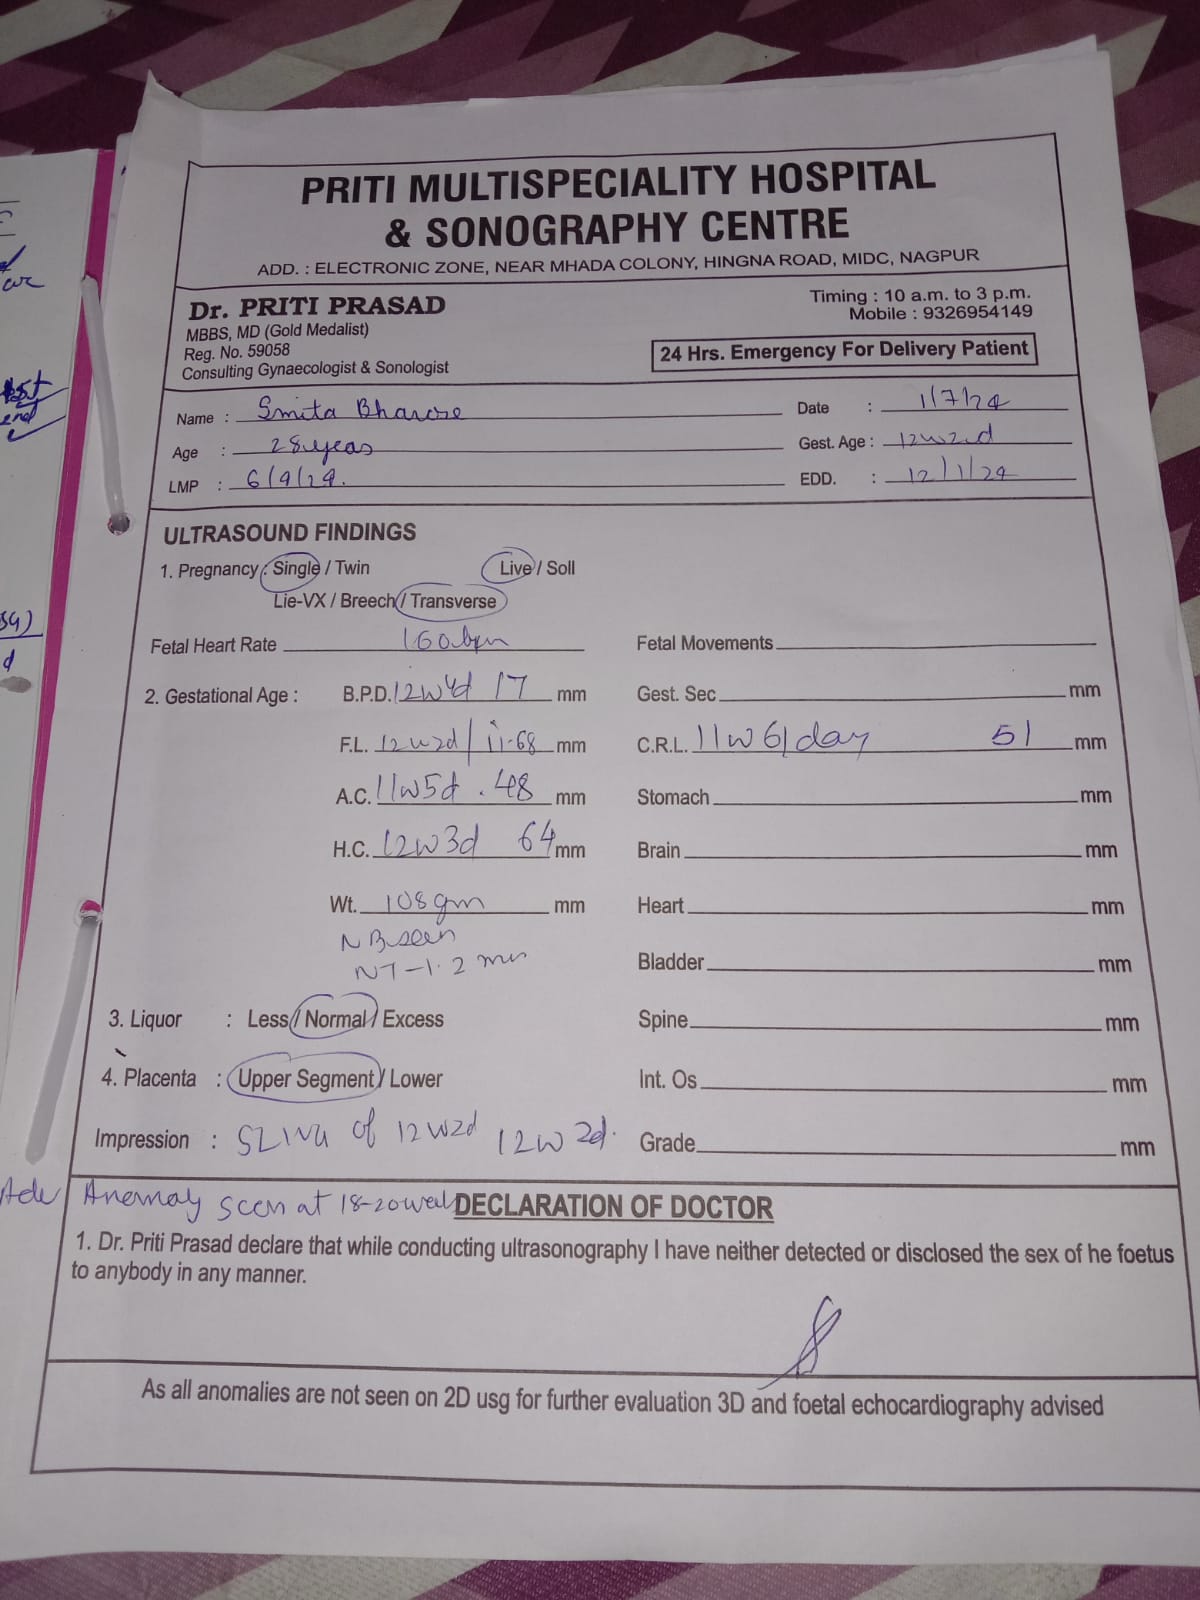 PRITI MULTISPECIALITY HOSPITAL
& SONOGRAPHY CENTRE
ADD. : ELECTRONIC ZONE, NEAR MHADA COLONY, HINGNA ROAD, MIDC, NAGPUR
Dr. PRITI PRASAD
MBBS, MD (Gold Medalist)
Reg. No. 59058
Consulting Gynaecologist & Sonologist
Timing : 10 a.m. to 3 p.m.
Mobile : 9326954149
24 Hrs. Emergency For Delivery Patient
Name : Smita Date : 1/7/24
Age : 28 years Gest. Age : 12w2d
LMP : 6/4/24. EDD. : 12/1/24
ULTRASOUND FINDINGS
1. Pregnancy : Single / Twin Live / Soll
Lie-VX / Breech / Transverse
Fetal Heart Rate 160bpm Fetal Movements
2. Gestational Age : B.P.D. 12w4d 17 mm Gest. Sec mm
F.L. 12w2d / 11.68 mm C.R.L. 11w 6/day 51 mm
A.C. 11w5d . 48 mm Stomach mm
H.C. 12w3d 64 mm Brain mm
Wt. 108gm mm Heart mm
NB seen
NT - 1.2 mm Bladder mm
3. Liquor : Less / Normal / Excess Spine mm
4. Placenta : Upper Segment / Lower Int. Os mm
Impression : of 12w2d 12w 2d. Grade mm
Adv Anomaly scan at 18-20 week
DECLARATION OF DOCTOR
1. Dr. Priti Prasad declare that while conducting ultrasonography I have neither detected or disclosed the sex of he foetus
to anybody in any manner.
As all anomalies are not seen on 2D usg for further evaluation 3D and foetal echocardiography advised